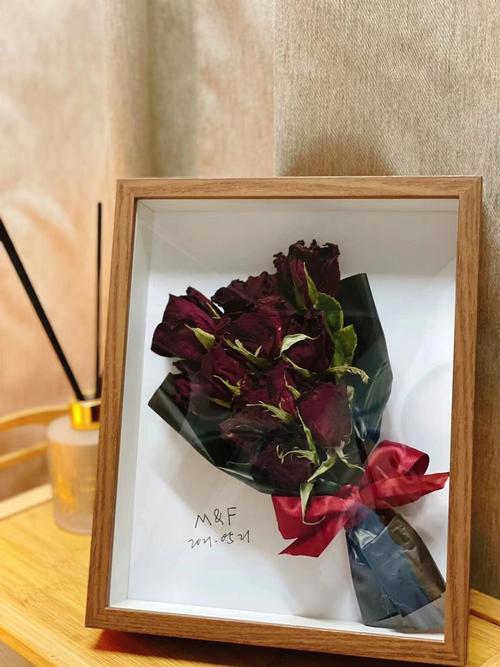 M&F
2021.05.21